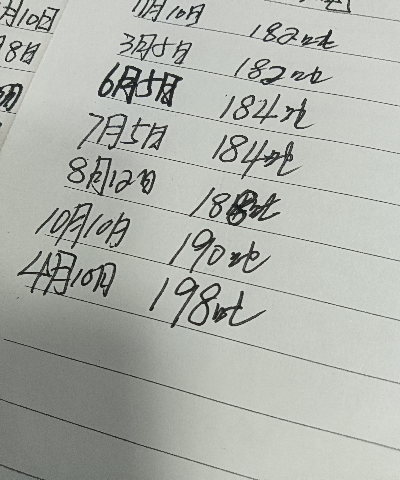 月10日
8日
11月10日 182吨
3月5日 182吨
6月5日 184吨
7月5日 184吨
8月12日 188吨
10月10日 190吨
4月10日 198吨